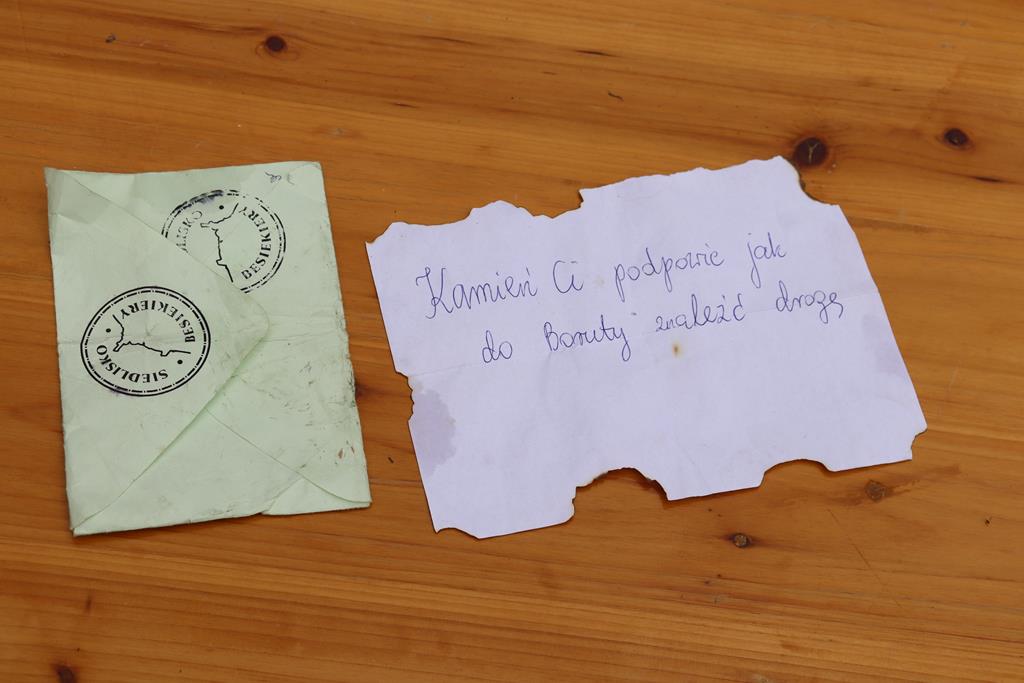 BESIEKIERY
SIEDLISKO
BESIEKIERY
Kamień Ci podpowie jak
do Boruty znaleźć drogę